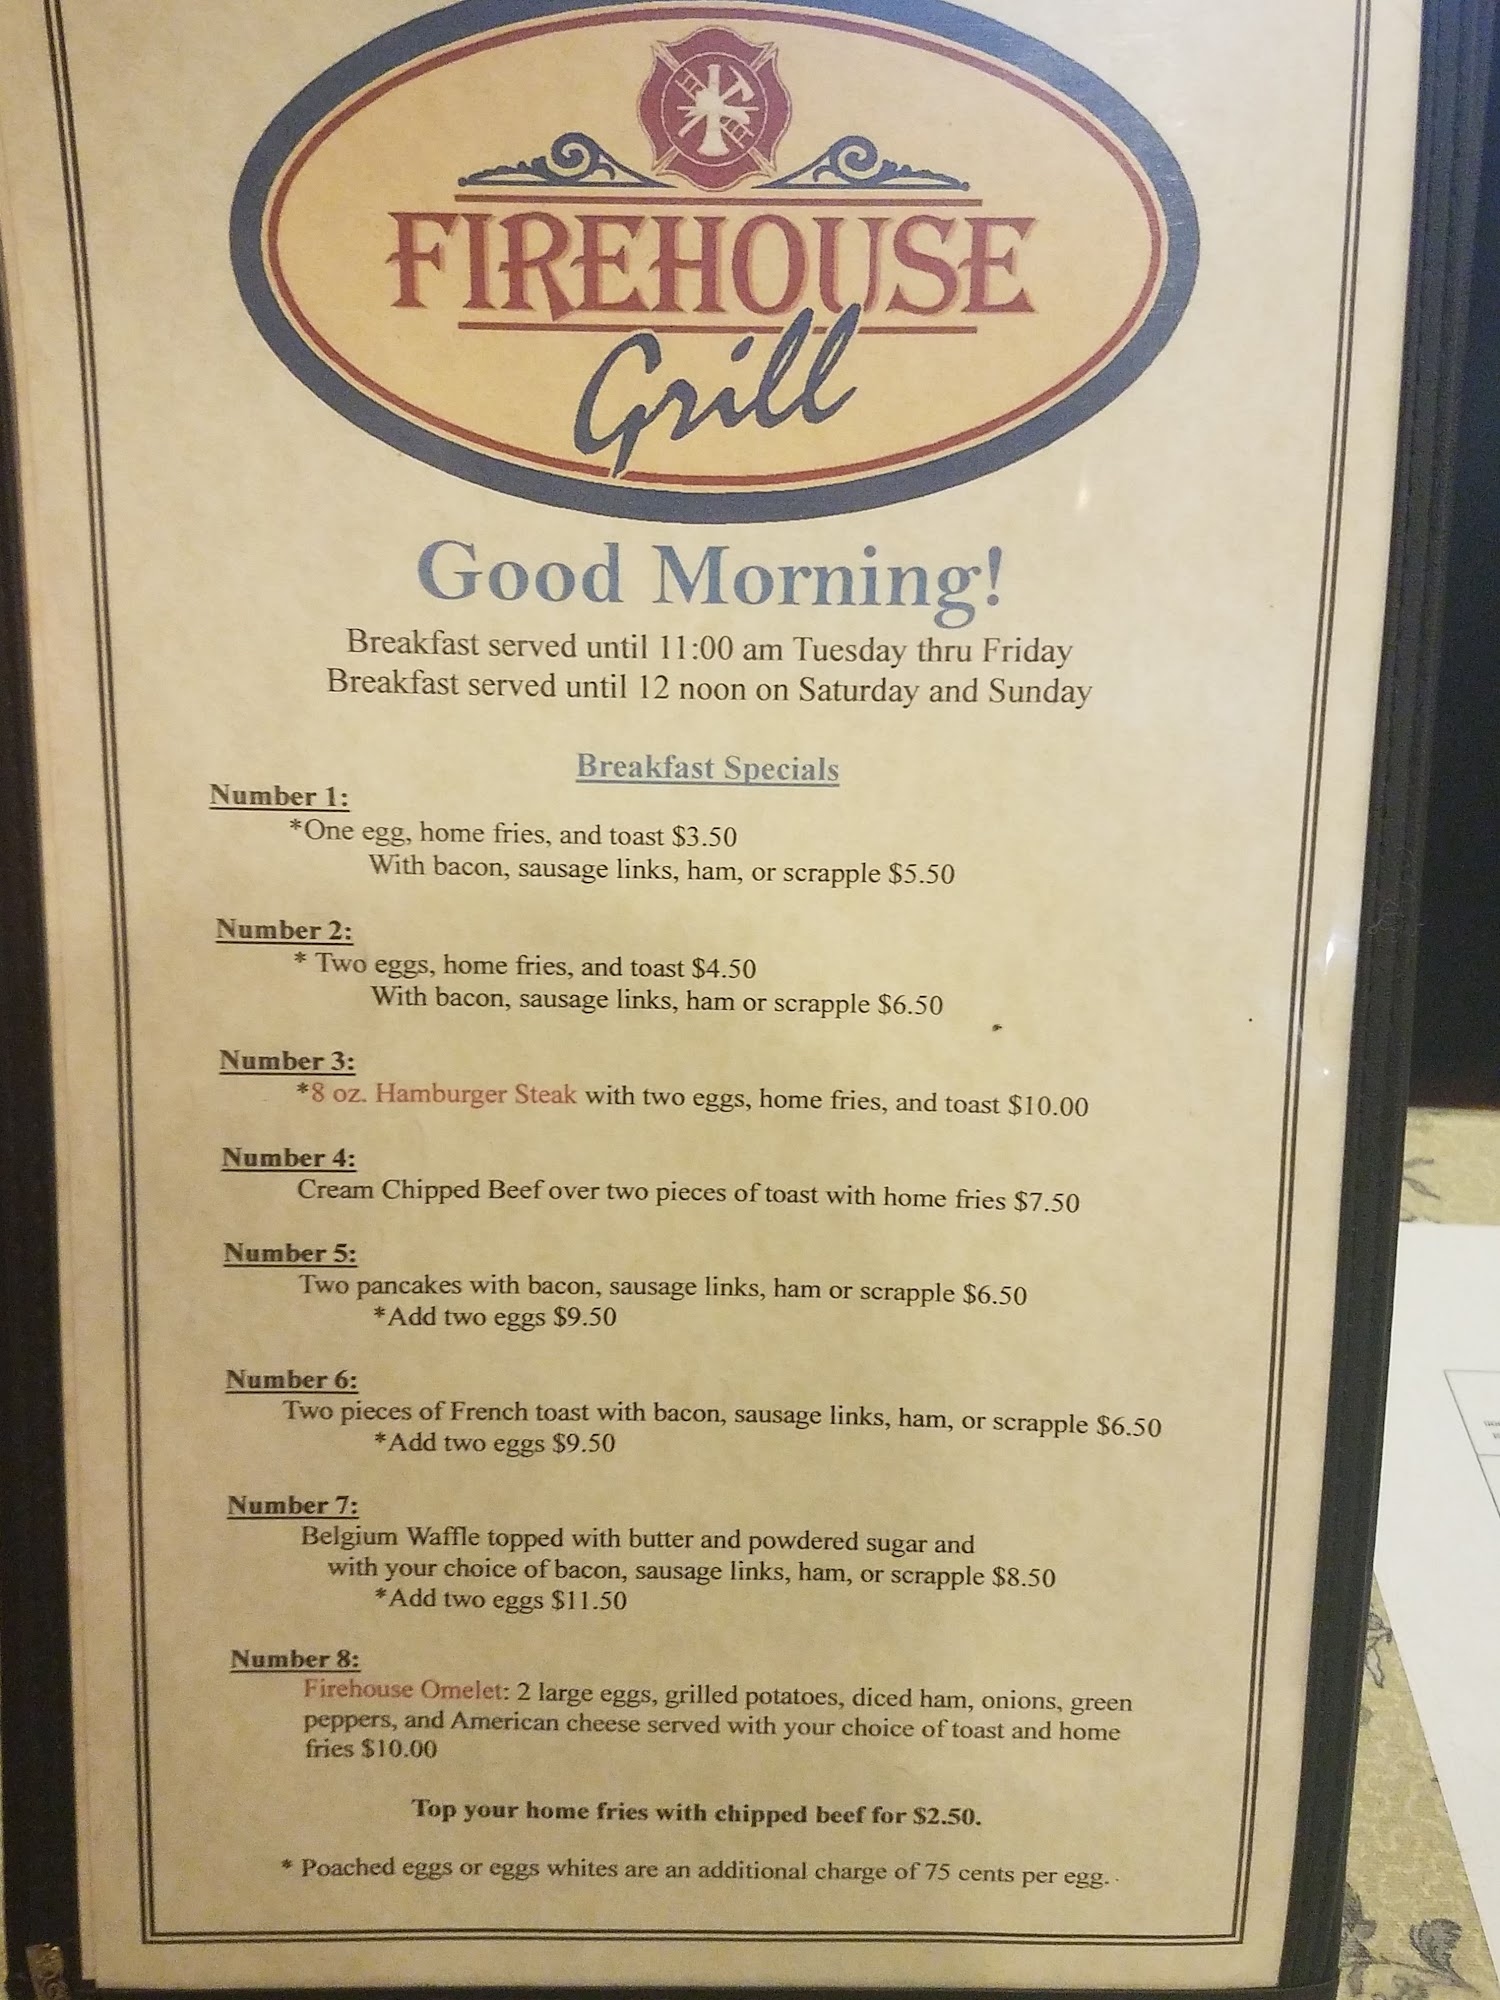 FIREHOUSE
Grill
Good Morning!
Breakfast served until 11:00 am Tuesday thru Friday
Breakfast served until 12 noon on Saturday and Sunday
Breakfast Specials
Number 1:
*One egg, home fries, and toast $3.50
With bacon, sausage links, ham, or scrapple $5.50
Number 2:
* Two eggs, home fries, and toast $4.50
With bacon, sausage links, ham or scrapple $6.50
Number 3:
*8 oz. Hamburger Steak with two eggs, home fries, and toast $10.00
Number 4:
Cream Chipped Beef over two pieces of toast with home fries $7.50
Number 5:
Two pancakes with bacon, sausage links, ham or scrapple $6.50
*Add two eggs $9.50
Number 6:
Two pieces of French toast with bacon, sausage links, ham, or scrapple $6.50
*Add two eggs $9.50
Number 7:
Belgium Waffle topped with butter and powdered sugar and
with your choice of bacon, sausage links, ham, or scrapple $8.50
*Add two eggs $11.50
Number 8:
Firehouse Omelet: 2 large eggs, grilled potatoes, diced ham, onions, green
peppers, and American cheese served with your choice of toast and home
fries $10.00
Top your home fries with chipped beef for $2.50.
* Poached eggs or eggs whites are an additional charge of 75 cents per egg.